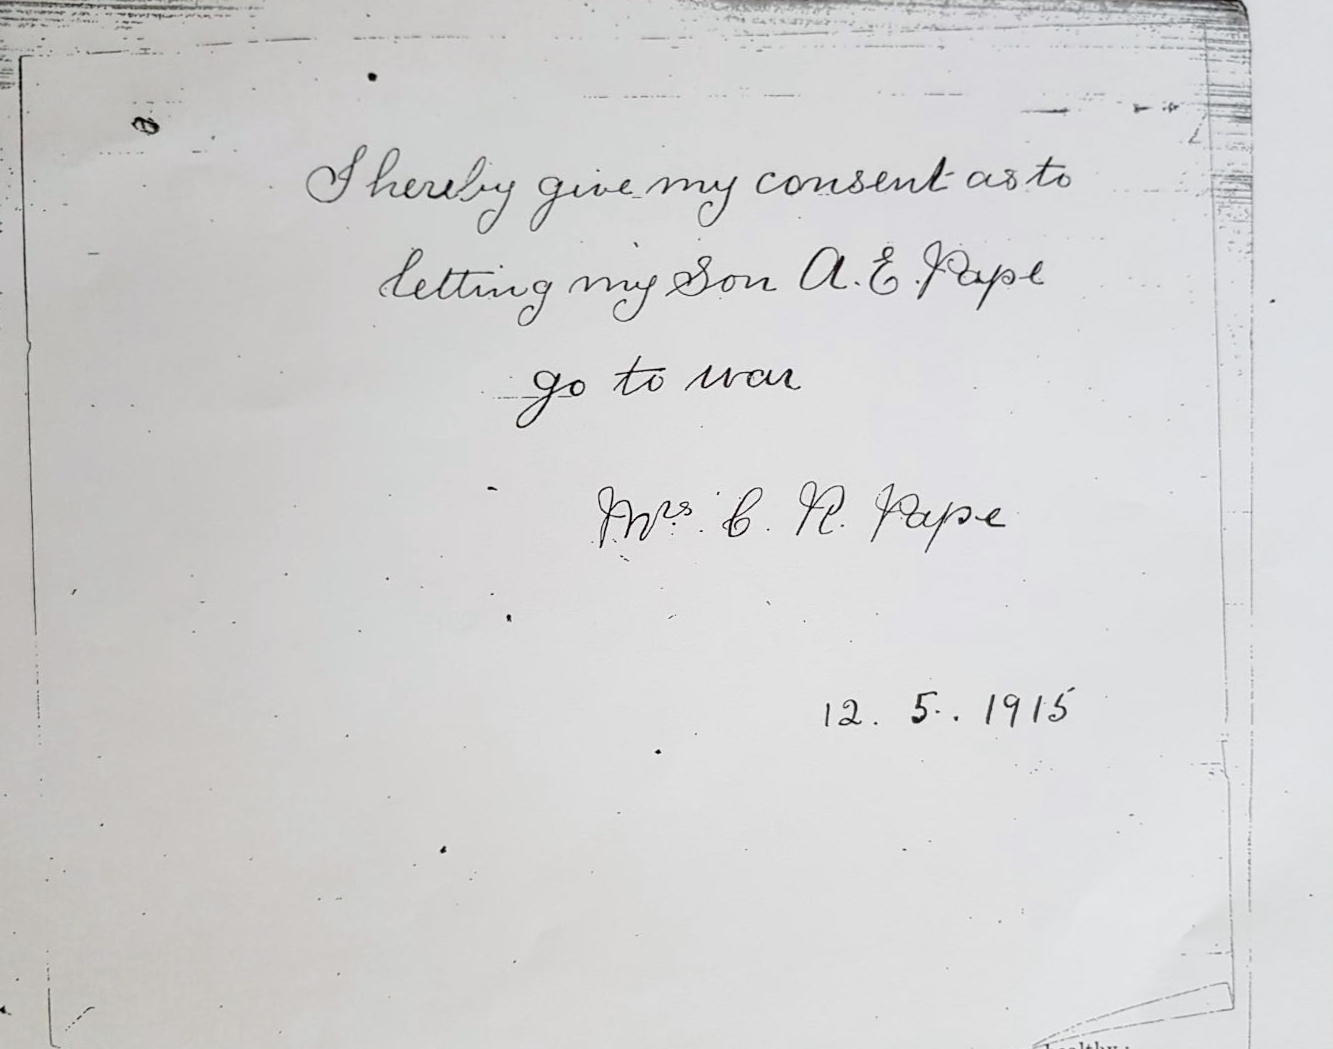 I hereby give my consent as to
letting my Son A. E. Pape
go to war
Mrs. C. R. Pape
12. 5. 1915
healthy;